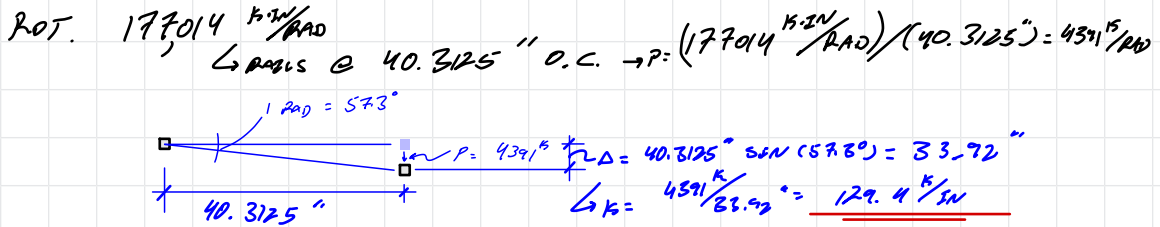 ROT. 177,014 K·IN/RAD
↳ RAILS @ 40.3125" O.C. → P= (177014 K·IN/RAD)/(40.3125") = 4391 K/RAD
1 RAD = 57.3°
P= 4391 K
Δ= 40.3125" SIN (57.3°) = 33.92"
40.3125"
↳ K= 4391 K/33.92" = 129.4 K/IN